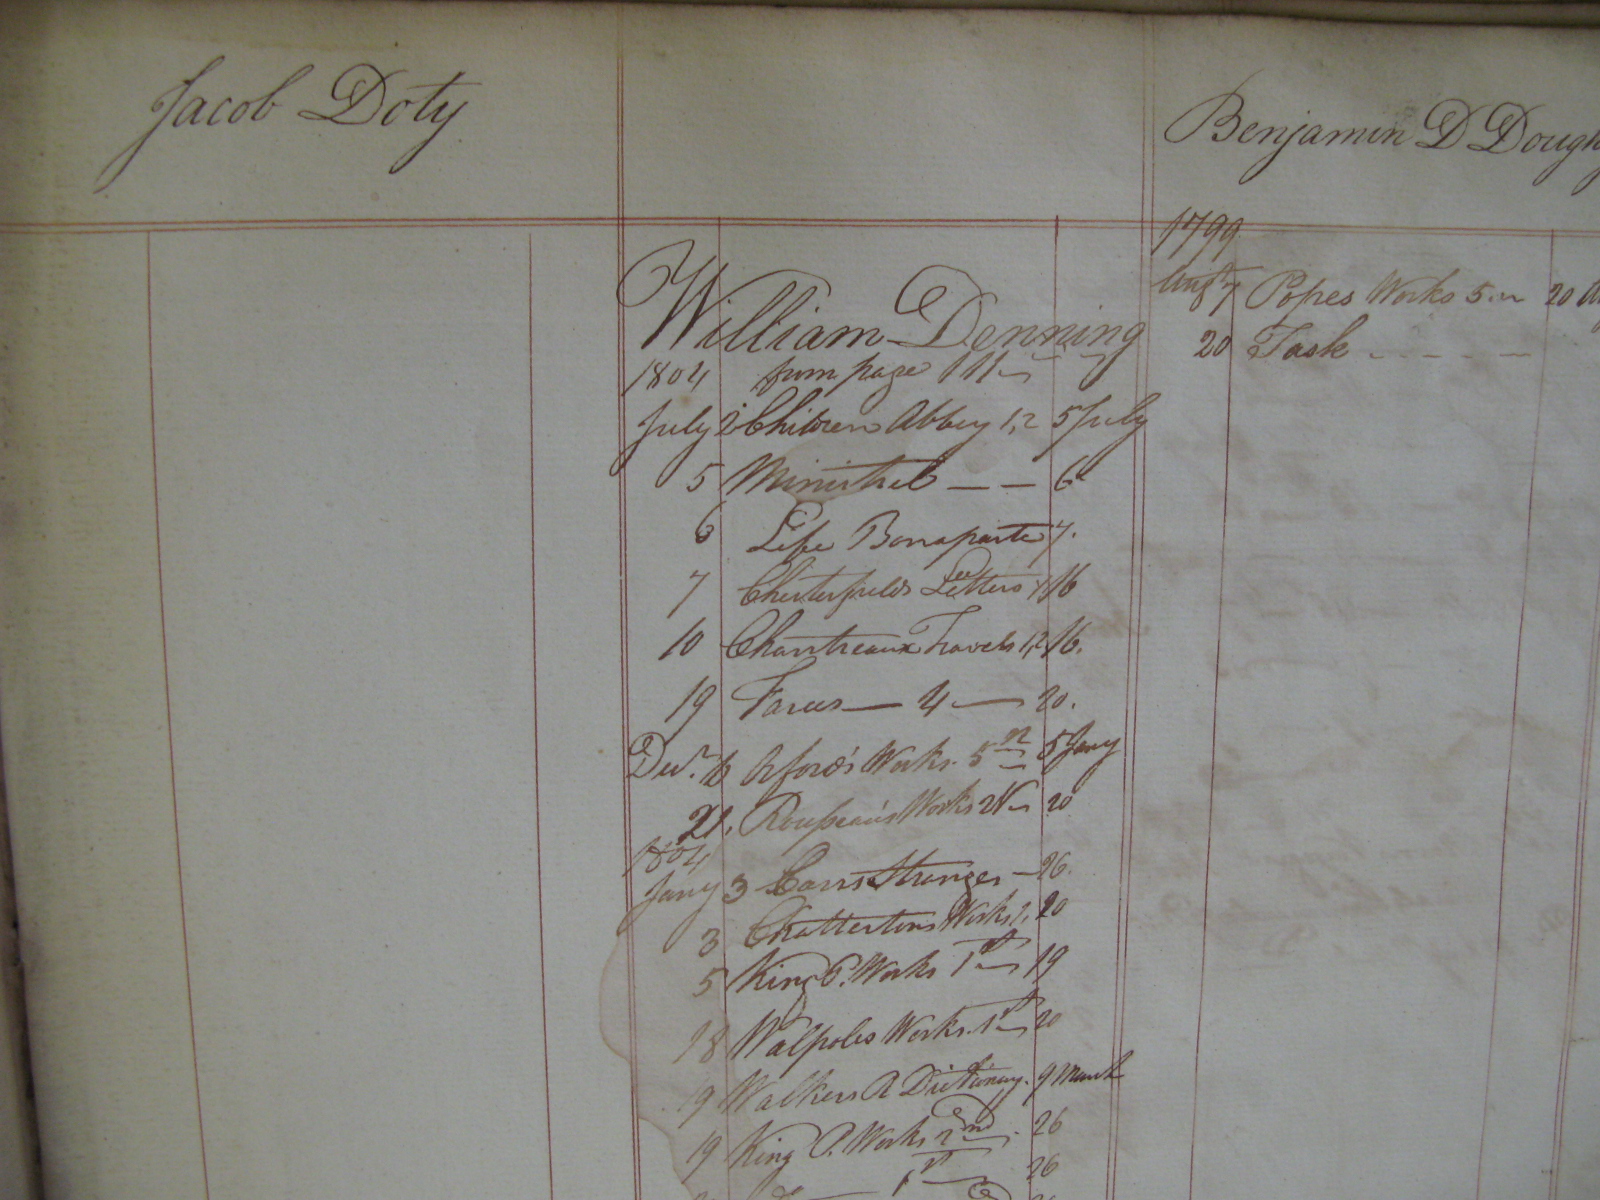 Jacob Doty
William Denning
1804 from page 111
July 2 Children Abbey 1,2 5 July
5 Minstrel — — 6
6 Life Bonaparte 7.
7 Chesterfields Letters 16
10 Chantreaux Travels 1,2 16.
19 Farces — 4 — 20.
Decr. 16 Orford's Works. 5 5 Jany
21. Rousseau's Works 20
1804
Jany 3 Carrs Stranger — 26.
3 Chattertons Works 1, 20
5 King P. Works 1st 19
18 Walpoles Works. 1st 20
19 Walkers R Dictionary. 9 March
19 King P. Works 2nd. 26
1st — 26
Benjamin D Dough
1799
Augt 7 Popes Works 5 20
20 Task - - - - -